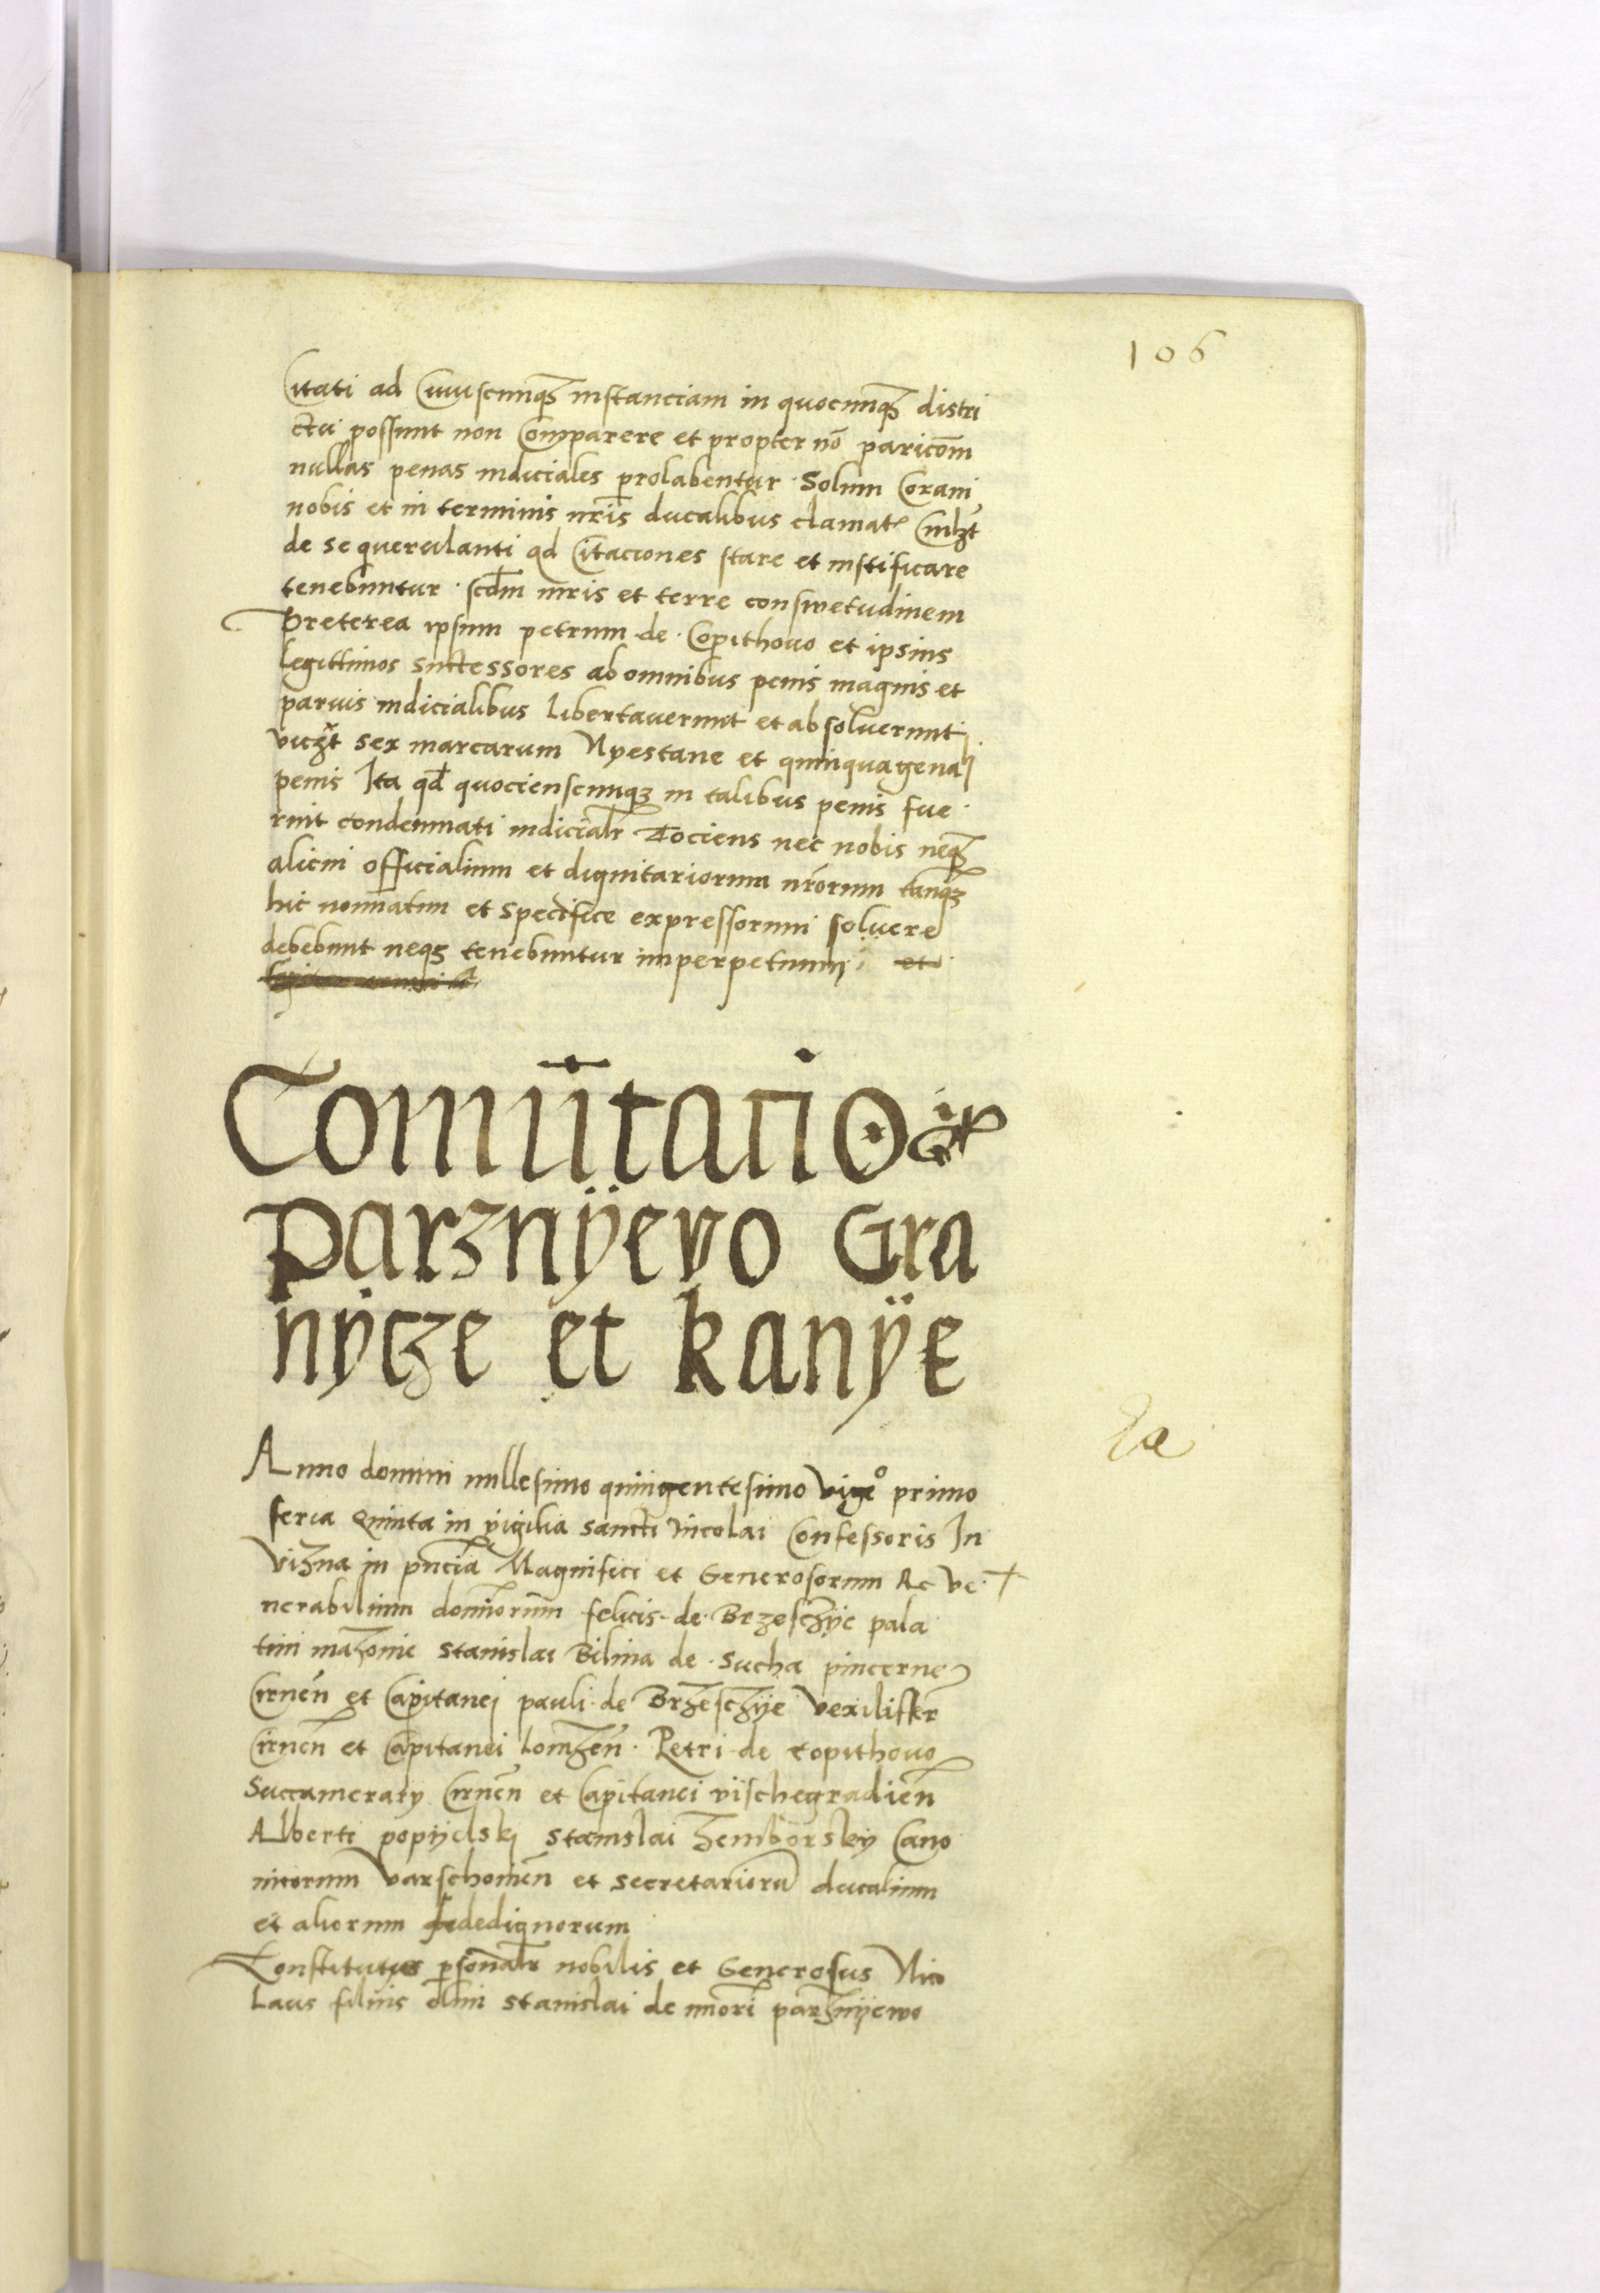 106
Citati ad Cuiuscunqꝫ instanciam in quocunqꝫ distri
ctu possunt non Comparere et propter nō paricōm
nullas penas iudiciales prolabentur Solum Coram
nobis et in terminis nr̄is ducalibus clamat
de se querulanti ad Citaciones stare et iustificare
tenebuntur scdm iuris et terre conswetudinem
Preterea ipsum petrum de Copithovo et ipsius
legittimos successores ab omnibus penis magnis et
parvis iudicialibus libertaverunt et absolverunt
viczt sex marcarum Nyestane et quinquagena
penis Ita qd quocienscunqꝫ in talibus penis fue
rint condemnati iudicialr Tociens nec nobis neqꝫ
alicui officialium et dignitariorum nrōrum tanqꝫ
hic nominatim et specifice expressorum solvere
debebunt neqꝫ tenebuntur imperpetuum et
Comūtacio
Parznÿevo Gra
nÿcze et kanÿe
Anno domini millesimo quingentesimo vigͦ primo
feria Quinta in vigilia sancti Nicolai Confessoris In
Vizna in pn̄cia Magnifici et Generosorum Ac Ve
nerabilium dominorum felicis de Brzesczÿe pala
tini mazovie Stanislai Bilina de Sucha pincerne
Cirnen̄ et Capitanei pauli de Brzesczÿe Vexilifer
Cirnen̄ et Capitanei lomzen̄ Petri de Copithovo
Succamerarÿ Cirnen̄ et Capitanei vischegradien̄
Alberti popÿelski Stanislai Zemborskÿ Cano
nicorum Varschovien̄ et Secretariorū ducalium
et aliorum fidedignorum
Constitutus psonalr nobilis et Generosus Nico
laus filius olim Stanislai de minori parznÿewo